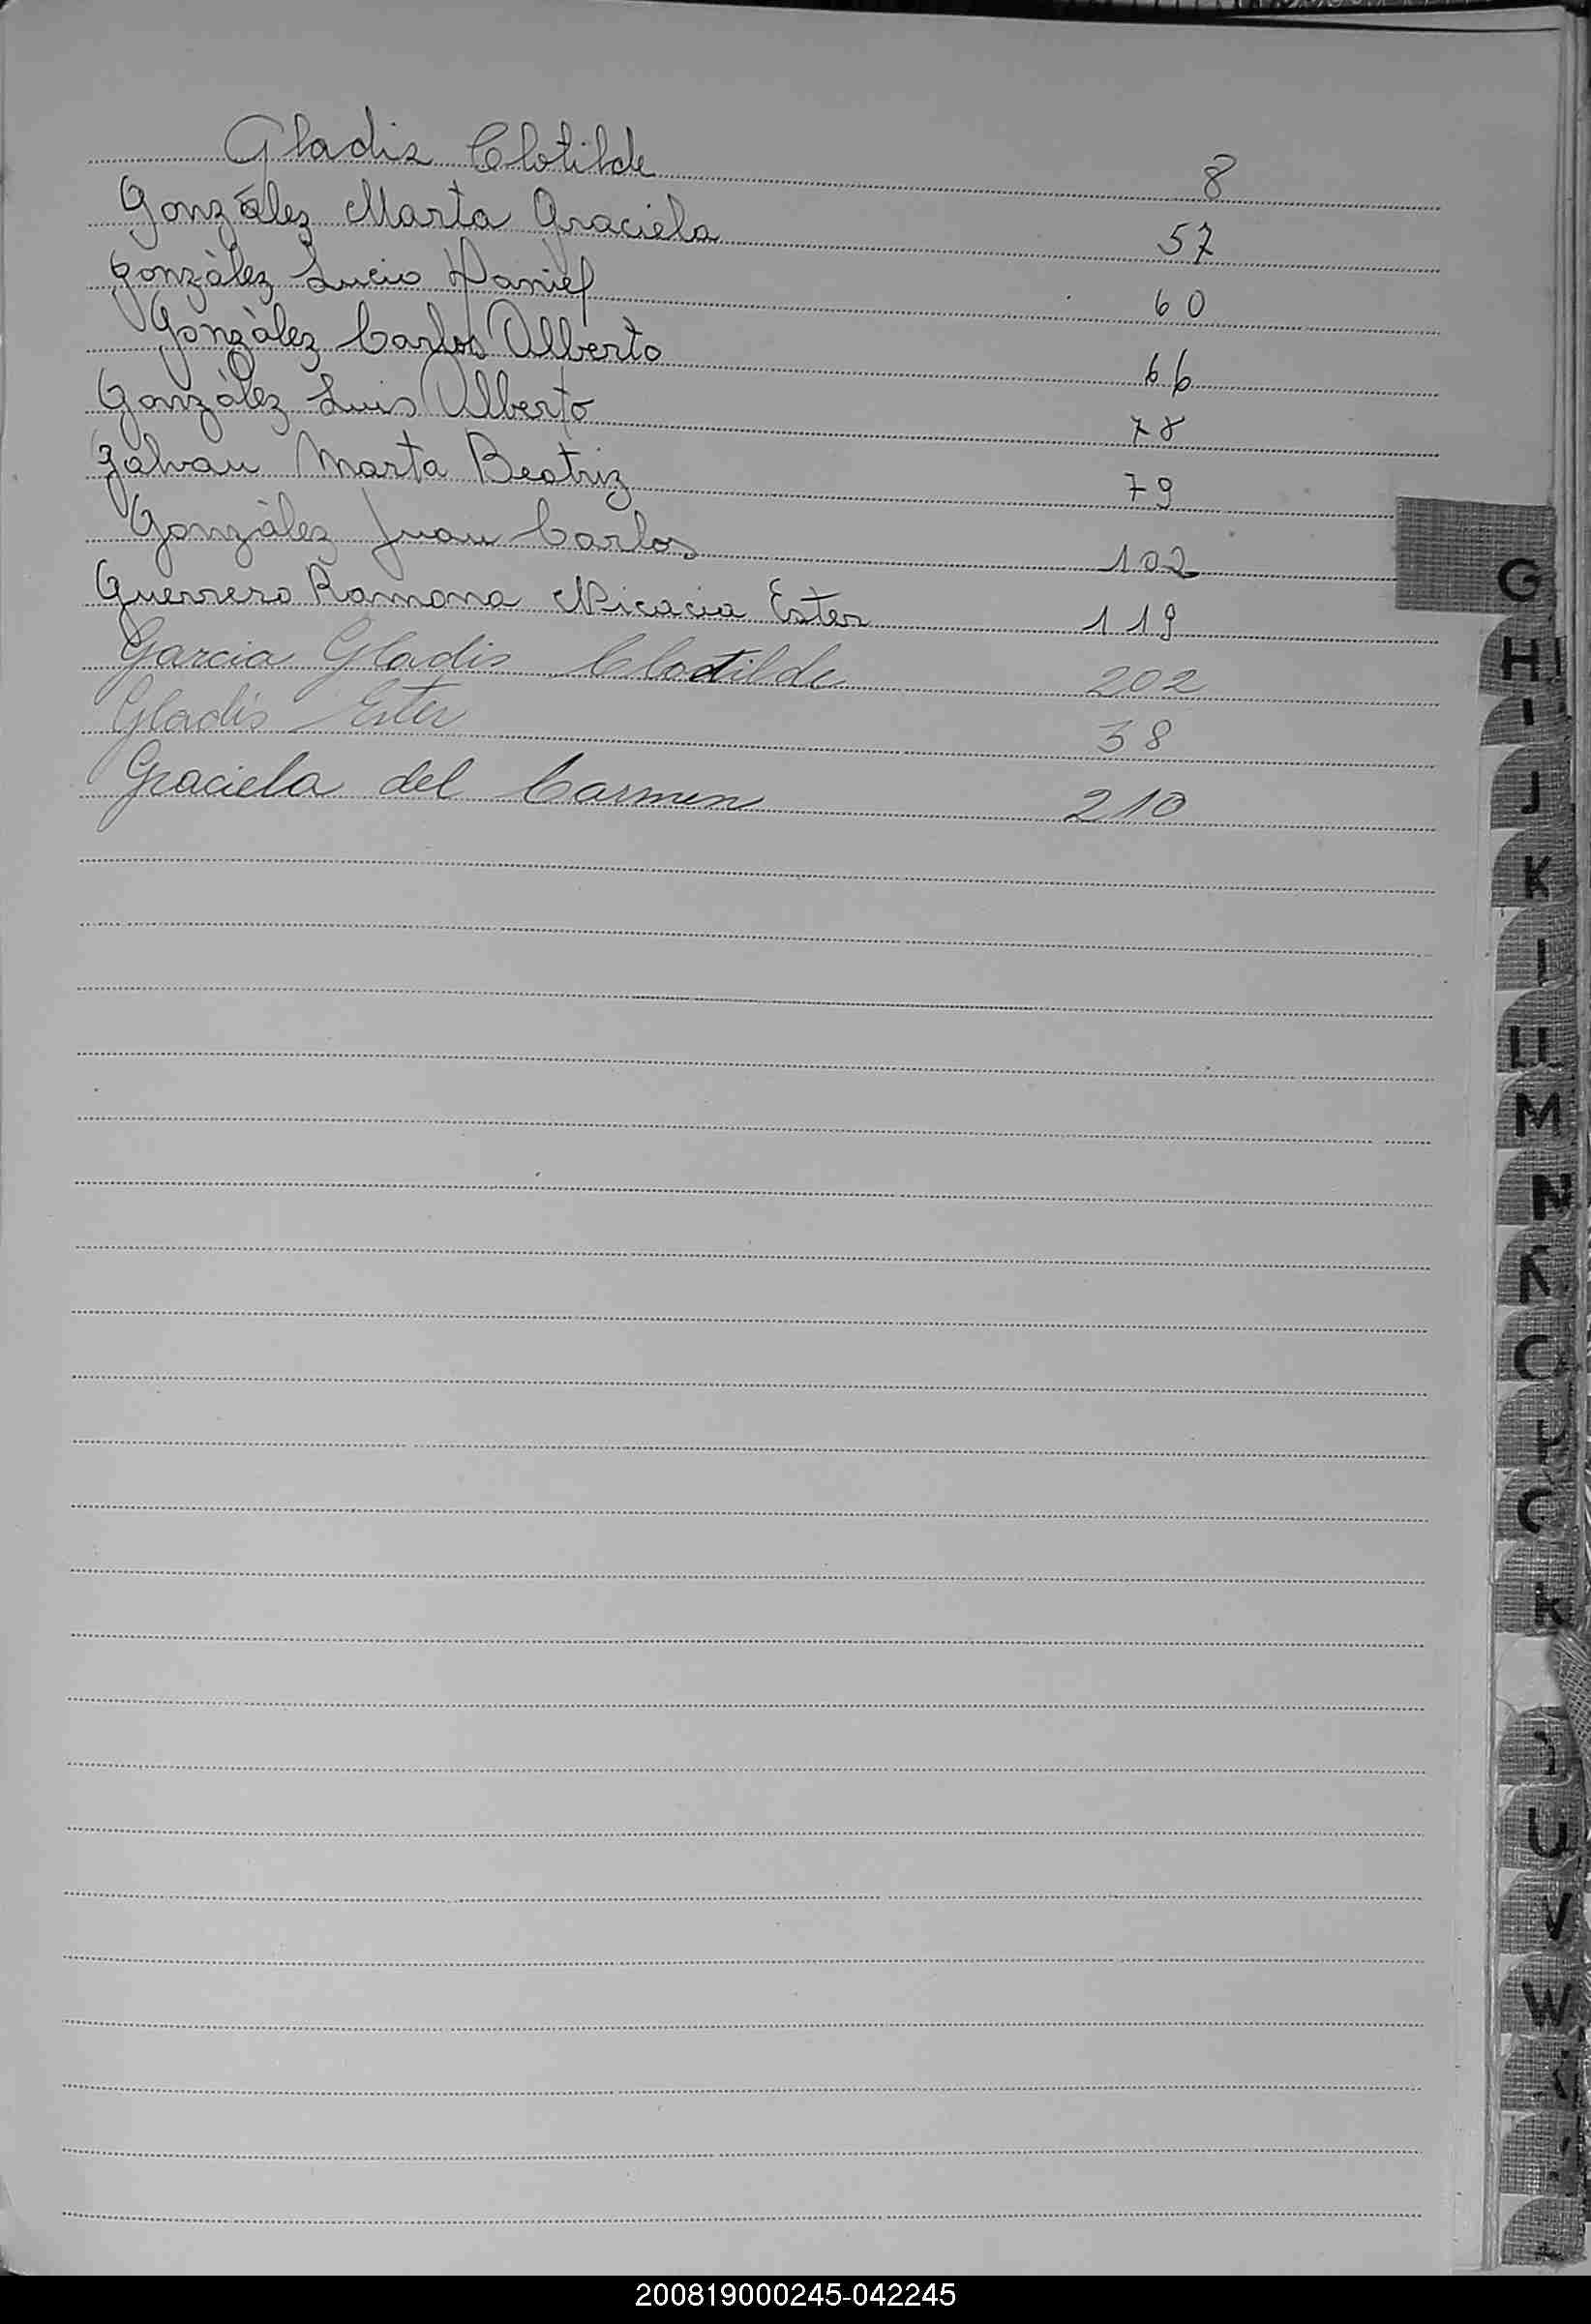 Gladis Clotilde 8
González Marta Graciela 57
Gonzàlez Lucio Daniel 60
Gonzàlez Carlos Alberto 66
Gonzàlez Luis Alberto 78
Galvan Marta Beatriz 79
Gonzàlez Juan Carlos 102
Guerrero Ramona Nicacia Ester 119
Garcia Gladis Cloctilde 202
Gladis Ester 38
Graciela del Carmen 210
G
H
I
J
K
M
N
U
V
W
200819000245-042245